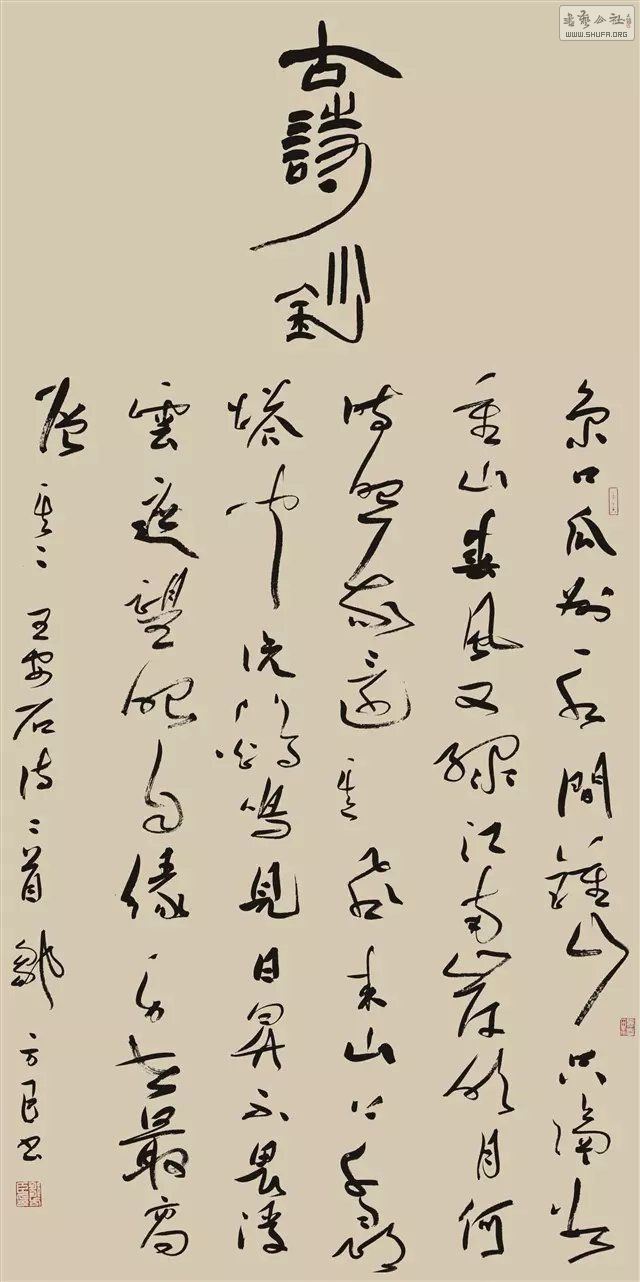 書藝公社
WWW.SHUFA.ORG
古詩
京口瓜洲一水間鍾山只隔數
重山春風又綠江南岸明月何
時照我還其一飛來山上千尋
塔聞說雞鳴見日昇不畏浮
雲遮望眼自緣身在最高
層其二王安石詩二首鄒方臣書